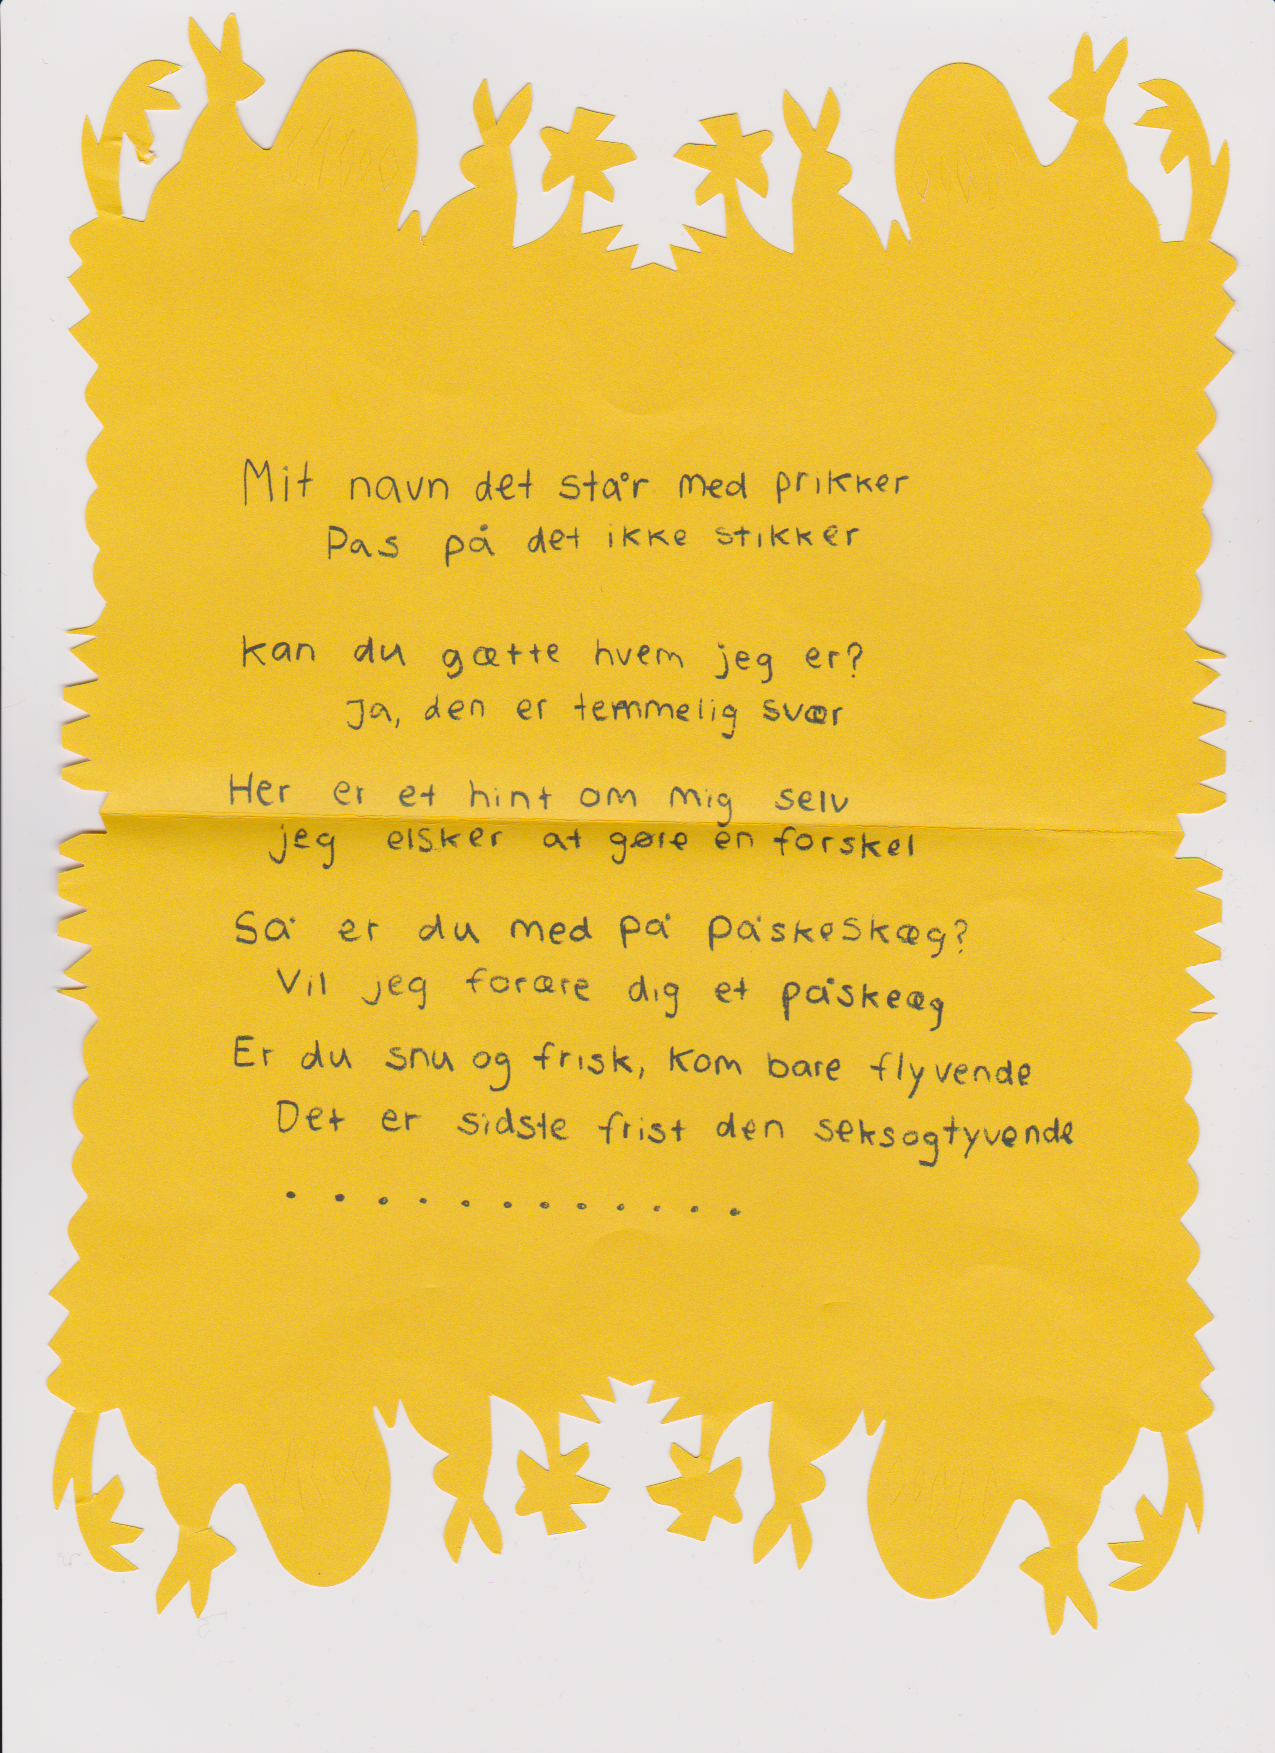 Mit navn det står med prikker
Pas på det ikke stikker
kan du gætte hvem jeg er?
Ja, den er temmelig svær
Her er et hint om mig selv
jeg elsker at gøre en forskel
Så er du med på påskeskæg?
Vil jeg forære dig et påskeæg
Er du snu og frisk, kom bare flyvende
Det er sidste frist den seksogtyvende
. . . . . . . . . . . .